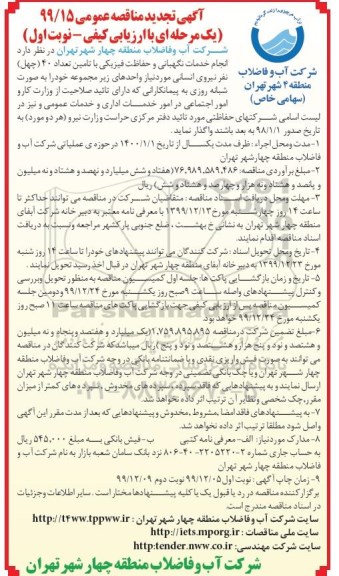 آگهی تجدید مناقصه عمومی ۹۹/۱۵
(یک مرحله ای با ارزیابی کیفی - نوبت اول)
شرکت آب و فاضلاب
منطقه ۴ شهر تهران
(سهامی خاص)
شرکت آب و فاضلاب منطقه چهار شهر تهران در نظر دارد
انجام خدمات نگهبانی و حفاظت فیزیکی با تامین تعداد ۴۰ (چهل)
نفر نیروی انسانی مورد نیاز واحدهای زیر مجموعه خود را به صورت
شبانه روزی به پیمانکارانی که دارای تائید صلاحیت از وزارت کار و
امور اجتماعی در امور خدمات اداری و خدمات عمومی و نیز در
لیست اسامی شرکتهای حفاظتی مورد تائید دفتر مرکزی حراست وزارت نیرو (هر دو مورد) به
تاریخ صدور ۹۸/۱/۱ به بعد باشند واگذار نماید.
۱- مدت و محل اجراء : ظرف مدت یکسال از تاریخ ۱۴۰۰/۱/۱ در حوزه ی عملیاتی شرکت آب و
فاضلاب منطقه چهار شهر تهران
۲- مبلغ برآوردی مناقصه: ۷۶,۹۸۹,۵۸۹,۴۸۶ (هفتاد و شش میلیارد و نهصد و هشتاد و نه میلیون
و پانصد و هشتاد و نه هزار و چهارصد و هشتاد و شش) ریال
۳- مهلت و محل دریافت اسناد مناقصه : متقاضیان شرکت در مناقصه می توانند حداکثر تا
ساعت ۱۴ روز چهارشنبه مورخ ۱۳۹۹/۱۲/۱۳ با معرفی نامه معتبر به دبیر خانه شرکت آبفای
منطقه چهار شهر تهران به نشانی خ بهشت ، ضلع جنوبی پارکشهر مراجعه و نسبت به دریافت
اسناد مناقصه اقدام نمایند.
۴- تاریخ و محل تحویل اسناد : شرکت کنندگان می توانند پیشنهادهای خود را تا ساعت ۱۴ روز شنبه
مورخ ۱۳۹۹/۱۲/۲۳ به دبیر خانه آبفای منطقه چهار شهر تهران در قبال اخذ رسید تحویل نمایند .
۵- تاریخ و زمان بازگشایی پاکت ها: جلسه اول کمیسیون مناقصه به منظور تحویل و بررسی
و کنترل پیشنهادهای واصله ساعت ۹ صبح روز یکشنبه مورخ ۹۹/۱۲/۲۴ و دومین جلسه
کمیسیون مناقصه پس از ارزیابی کیفی جهت بازگشایی پاکت های مناقصه ساعت ۱۱ صبح روز
یکشنبه مورخ ۹۹/۱۲/۲۴ خواهد بود
۶- مبلغ تضمین شرکت در مناقصه ۱,۷۵۹,۸۹۵,۸۹۵ (یک میلیارد و هفتصد و پنجاه و نه میلیون
و هشتصد و نود و پنج هزار و هشتصد و نود و پنج) ریال میباشد که شرکت کنندگان در مناقصه
می توانند به صورت فیش واریزی نقدی و یا ضمانتنامه بانکی در وجه شرکت آب و فاضلاب منطقه
چهار شهر تهران و یا چک بانکی تضمینی در وجه شرکت آب و فاضلاب منطقه چهار شهر تهران
ارسال نمایند و به پیشنهادهایی که فاقد سپرده ، سپرده های مخدوش ، سپرده های کمتر از میزان
مقرر، چک شخصی و نظایر آن ترتیب اثر داده نخواهد شد.
۷- به پیشنهادهای فاقد امضا، مشروط، مخدوش و پیشنهادهایی که بعد از مدت مقرر این آگهی
واصل شود مطلقا ترتیب اثر داده نخواهد شد.
۸- مدارک مورد نیاز: الف- معرفی نامه کتبی ب- فیش بانکی به مبلغ ۵۴۵,۰۰۰ ریال
به حساب جاری شماره ۲-۲۲۰۵۲۲۰-۴۰-۸۰۶ نزد بانک سامان شعبه بازار به نام شرکت آب و
فاضلاب منطقه چهار شهر تهران
۹- زمان چاپ آگهی : نوبت اول ۹۹/۱۲/۰۵ نوبت دوم ۹۹/۱۲/۰۹
برگزار کننده مناقصه در رد یا قبول یک یا کلیه پیشنهادها مختار است . سایر اطلاعات و جزئیات
در اسناد مناقصه مندرج است.
سایت شرکت آب و فاضلاب منطقه چهار شهر تهران : http://t4ww.tppww.ir
سایت ملی مناقصات : http://iets.mporg.ir
سایت شرکت مهندسی: http:tender.nww.co.ir
شرکت آب و فاضلاب منطقه چهار شهر تهران